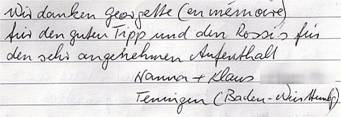 Wir danken Georgette (en mémoire)
für den guten Tipp und den Rossi's für
den sehr angenehmen Aufenthalt
Hanna + Klaus
Teningen (Baden-Württembg)